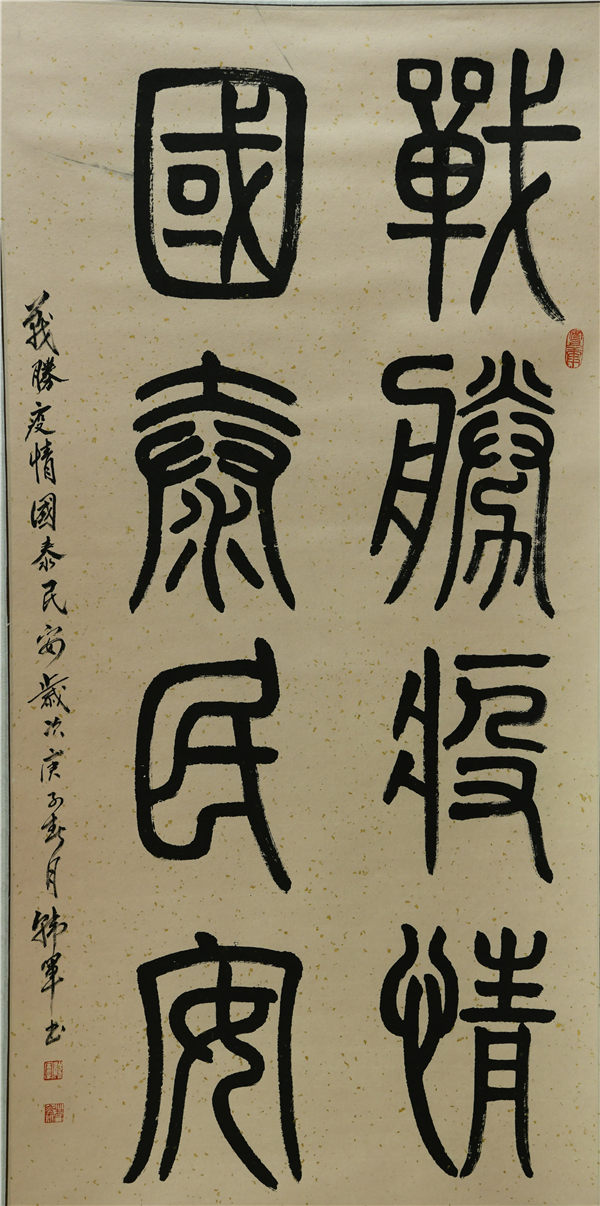 戰勝疫情
國泰民安
戰勝疫情國泰民安歲次庚子春月韩軍书